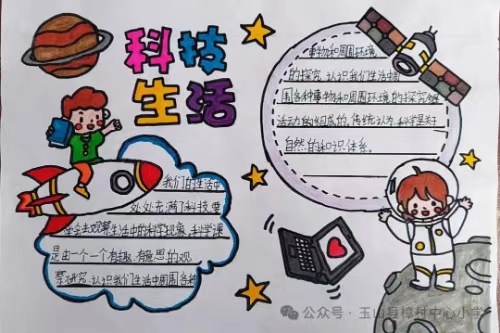 科技
生活
事物和周围环境
的探究,认识我们生活中周
围各种事物和周围环境的探究
活动力的组成的,传统认为,科学是关
自然的知识体系。
我们的生活中
处处充满了科技要
去观察生活中的科学现象,科学课
是由一个一个有趣、有意思的观
察研究,认识我们生活中周围各种
公众号·玉山县樟村中心小学